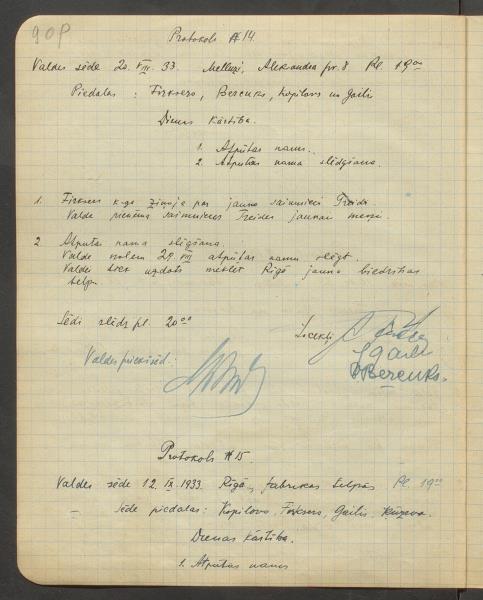 90P
Protokols № 14
Valdes sēde 20. VIII. 33. Melluži, Aleksandra pr. 8 Pl. 19⁰⁰
Piedalas : Firksers, Berenks, Kopilovs un Gaili
Dienas kārtība.
1. Atpūtas nams.
2. Atpūtas nama slēgšana.
1. Firksers k-gs ziņoja par jauno saimnieci Treidi
Valde pieņēma saimnieces Treides
2 Atpūtas nama slēgšana.
Valde nolem 29. VIII atpūtas namu slēgt.
Valdei tiek uzdots meklēt Rīgā jaunas biedrības
telpas.
Sēdi slēdz pl. 20⁰⁰
Locekļi
Valdes priekšsēd:
Gaili
Berenks.
Protokols № 15.
Valdes sēde 12. IX. 1933. Rīgā, fabrikas telpās Pl. 19⁰⁰
Sēdē piedalas: Kopilovs, Firksers, Gailis,
Dienas kārtība.
1. Atpūtas nams